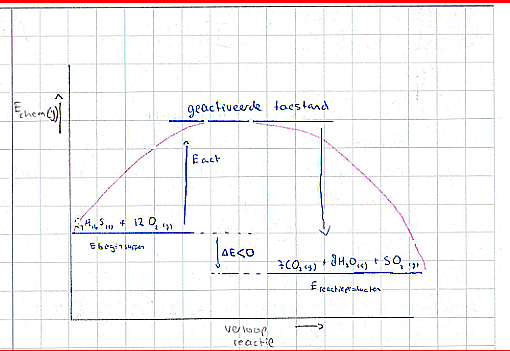 geactiveerde toestand
E chem (J)
E act
H₁₆S(l) + 12 O₂ (g)
E beginstoffen
ΔE<0
7CO₂(g) + 8H₂O(l) + SO₂ (g)
E reactieproducten
verloop
reactie